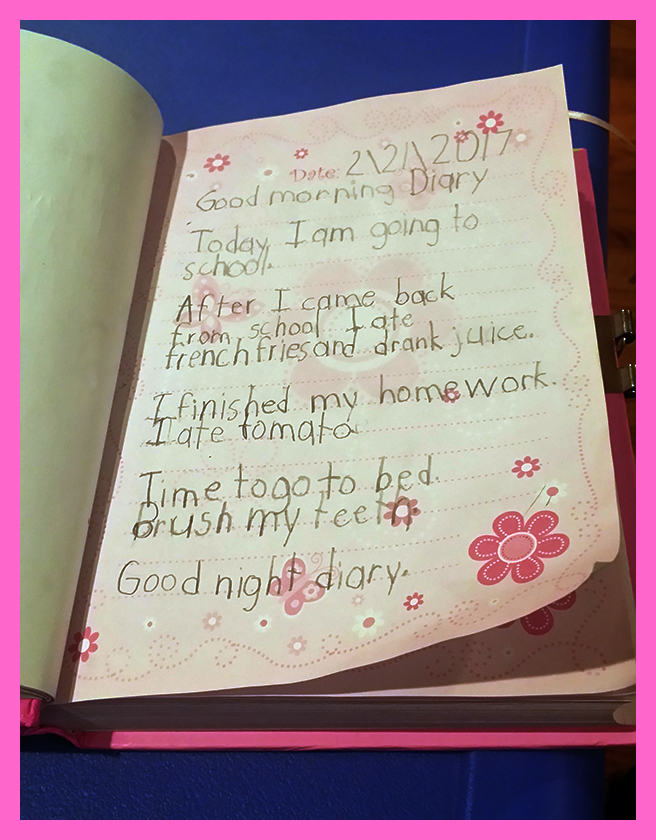 Date: 2\21\2017
Good morning Diary
Today I am going to
school.
After I came back
from school I ate
french fries and drank juice.
I finished my homework.
I ate tomato
Time to go to bed.
Brush my teeth.
Good night diary.